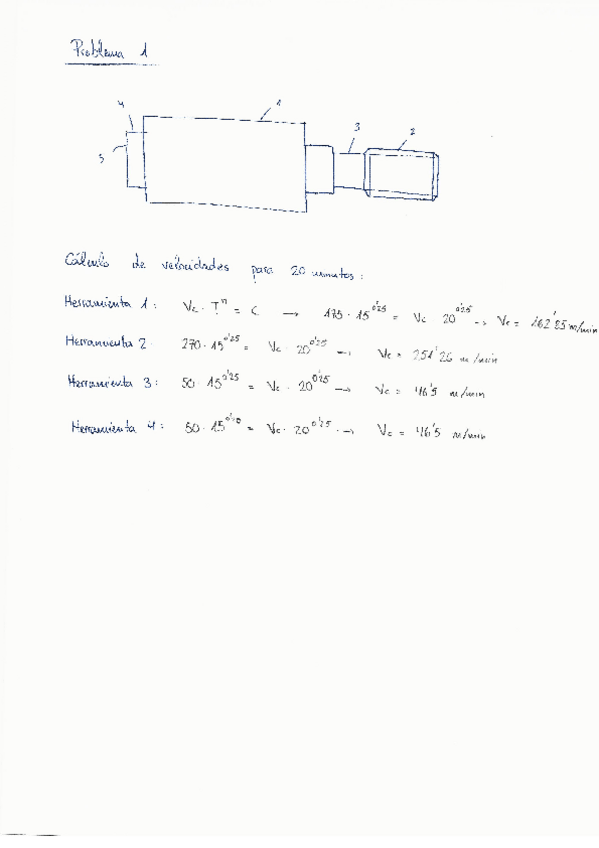 Problema 1
4
1
3
2
5
Cálculo de velocidades para 20 minutos:
Herramienta 1: Vc · Tⁿ = C → 175 · 15^0'25 = Vc 20^0'25 → Vc = 162'85 m/min
Herramienta 2 270 · 15^0'25 = Vc · 20^0'25 → Vc = 251'26 m/min
Herramienta 3: 50 · 15^0'25 = Vc · 20^0'25 → Vc = 46'5 m/min
Herramienta 4: 50 · 15 = Vc · 20^0'25 · → Vc = 46'5 m/min